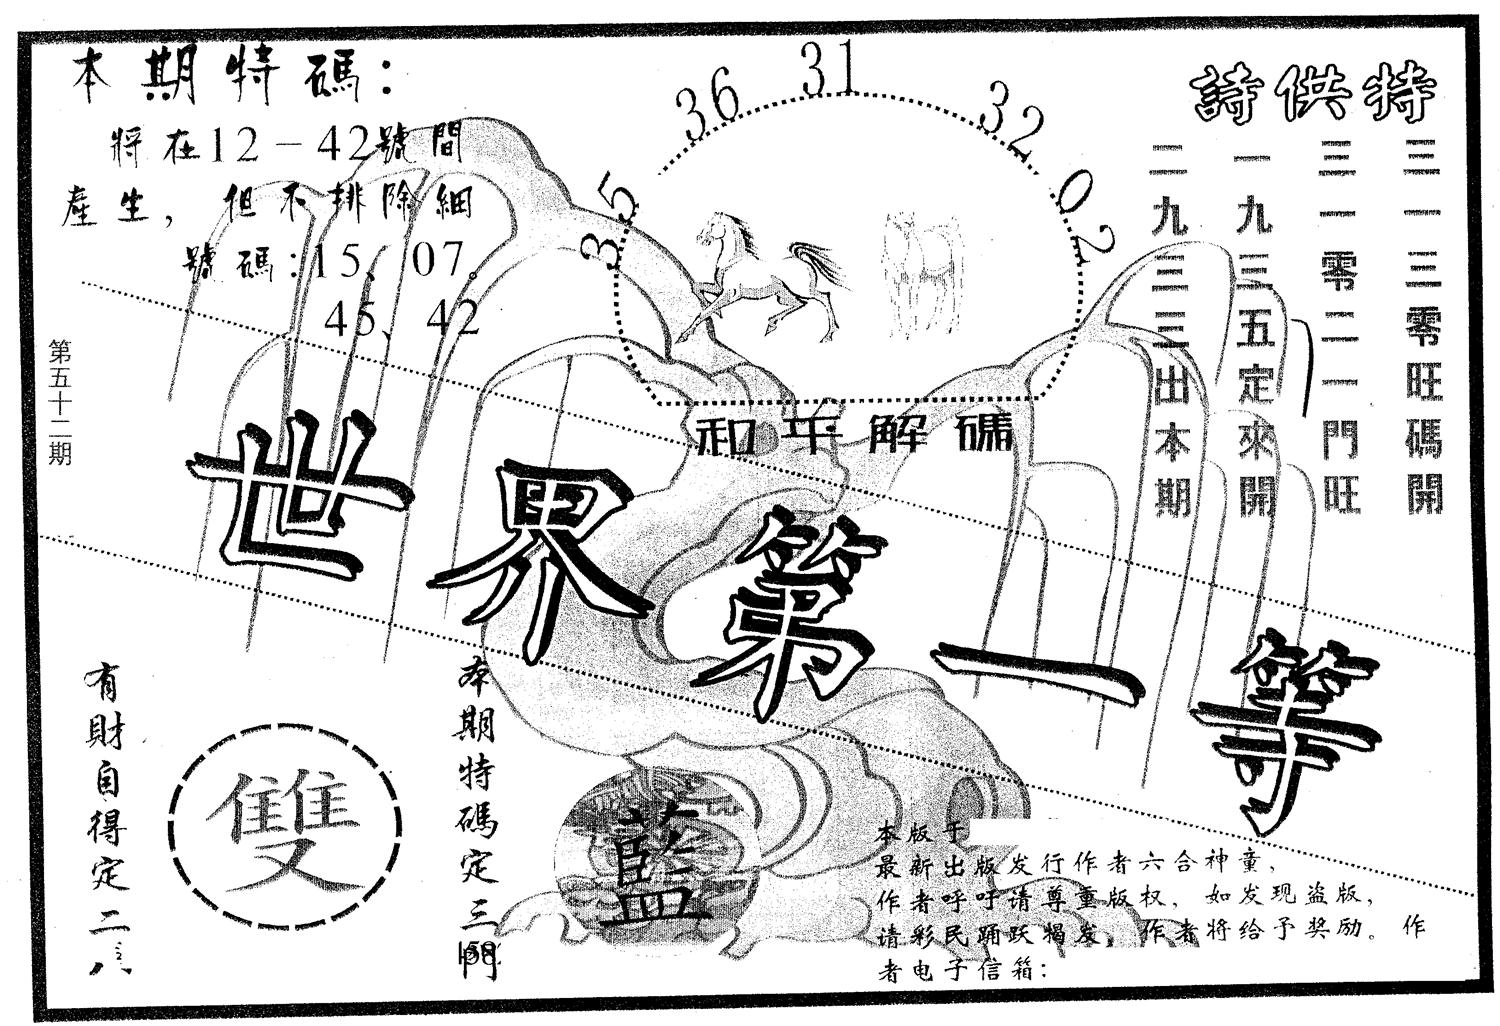 本期特碼：
將在12－42號間
產生，但不排除細
號碼：15、07。
45、42
35
36
31
32
02
和平解碼
特供詩
三一三零旺碼開
三一零二一門旺
一九三五定來開
二九三三出本期
第五十二期
世界第一等
有財自得定二八
雙
本期特碼定三門
藍
本版于
最新出版发行作者六合神童，
作者呼吁请尊重版权，如发现盗版，
请彩民踊跃揭发，作者将给予奖励。作
者电子信箱：